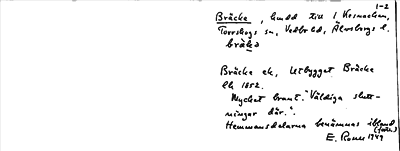 1-2
Bräcke, hmdd till 1 Kesnacken,
Torrskogs sn, Vedbo hd, Älvsborgs l.
bräkə
Bräcke ek, Utbygget Bräcke
Lh 1852.
Mycket brant. "Väldiga slutt-
ningar där."
Hemmansdelarna benämnas ibland
E. Rosen 1949